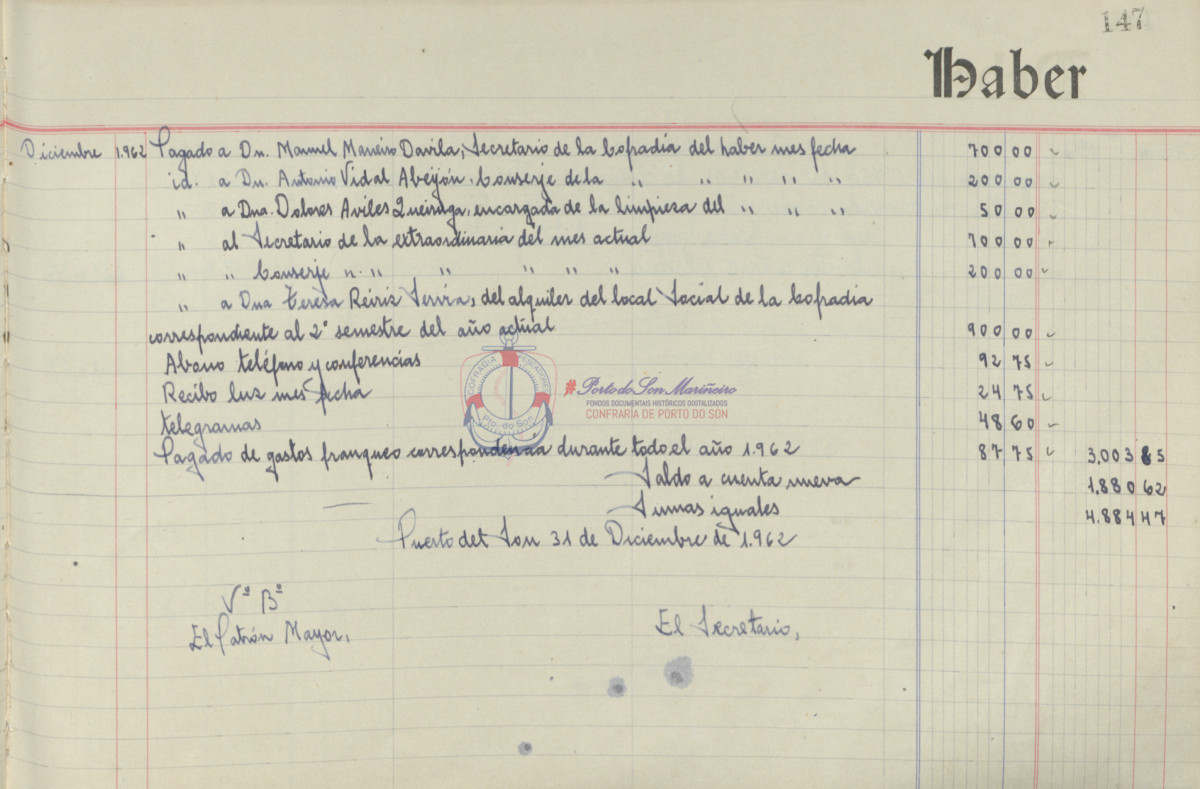 147
Haber
Diciembre 1.962 Pagado a Dn. Manuel Maneiro Davila, Secretario de la Cofradía del haber mes fecha 700 00
id. a Dn. Antonio Vidal Abeijón. Conserje de la " " " " " 200 00
" a Dna. Dolores Aviles Queiruga, encargada de la limpiesa del " " " 50 00
" al Secretario de la extraordinaria del mes actual 700 00
" " Conserje " " " " " " 200 00
" a Dna Teresa Reiriz Servia, del alquiler del local Social de la Cofradia
correspondiente al 2º semestre del año actual 900 00
Abono teléfono y conferencias 92 75
Recibo luz mes fecha 24 75
telegramas 48 60
Pagado de gastos franqueo correspondencia durante todo el año 1.962 87 75 3.003 85
Saldo a cuenta nueva 1.880 62
Sumas iguales 4.884 47
Puerto del Son 31 de Diciembre de 1.962
Vº Bº
El Patrón Mayor,
El Secretario,
COFRADIA PESCADORES
Pto. do Son
#Porto do Son Mariñeiro
FONDOS DOCUMENTAIS HISTÓRICOS DIXITALIZADOS
CONFRARÍA DE PORTO DO SON